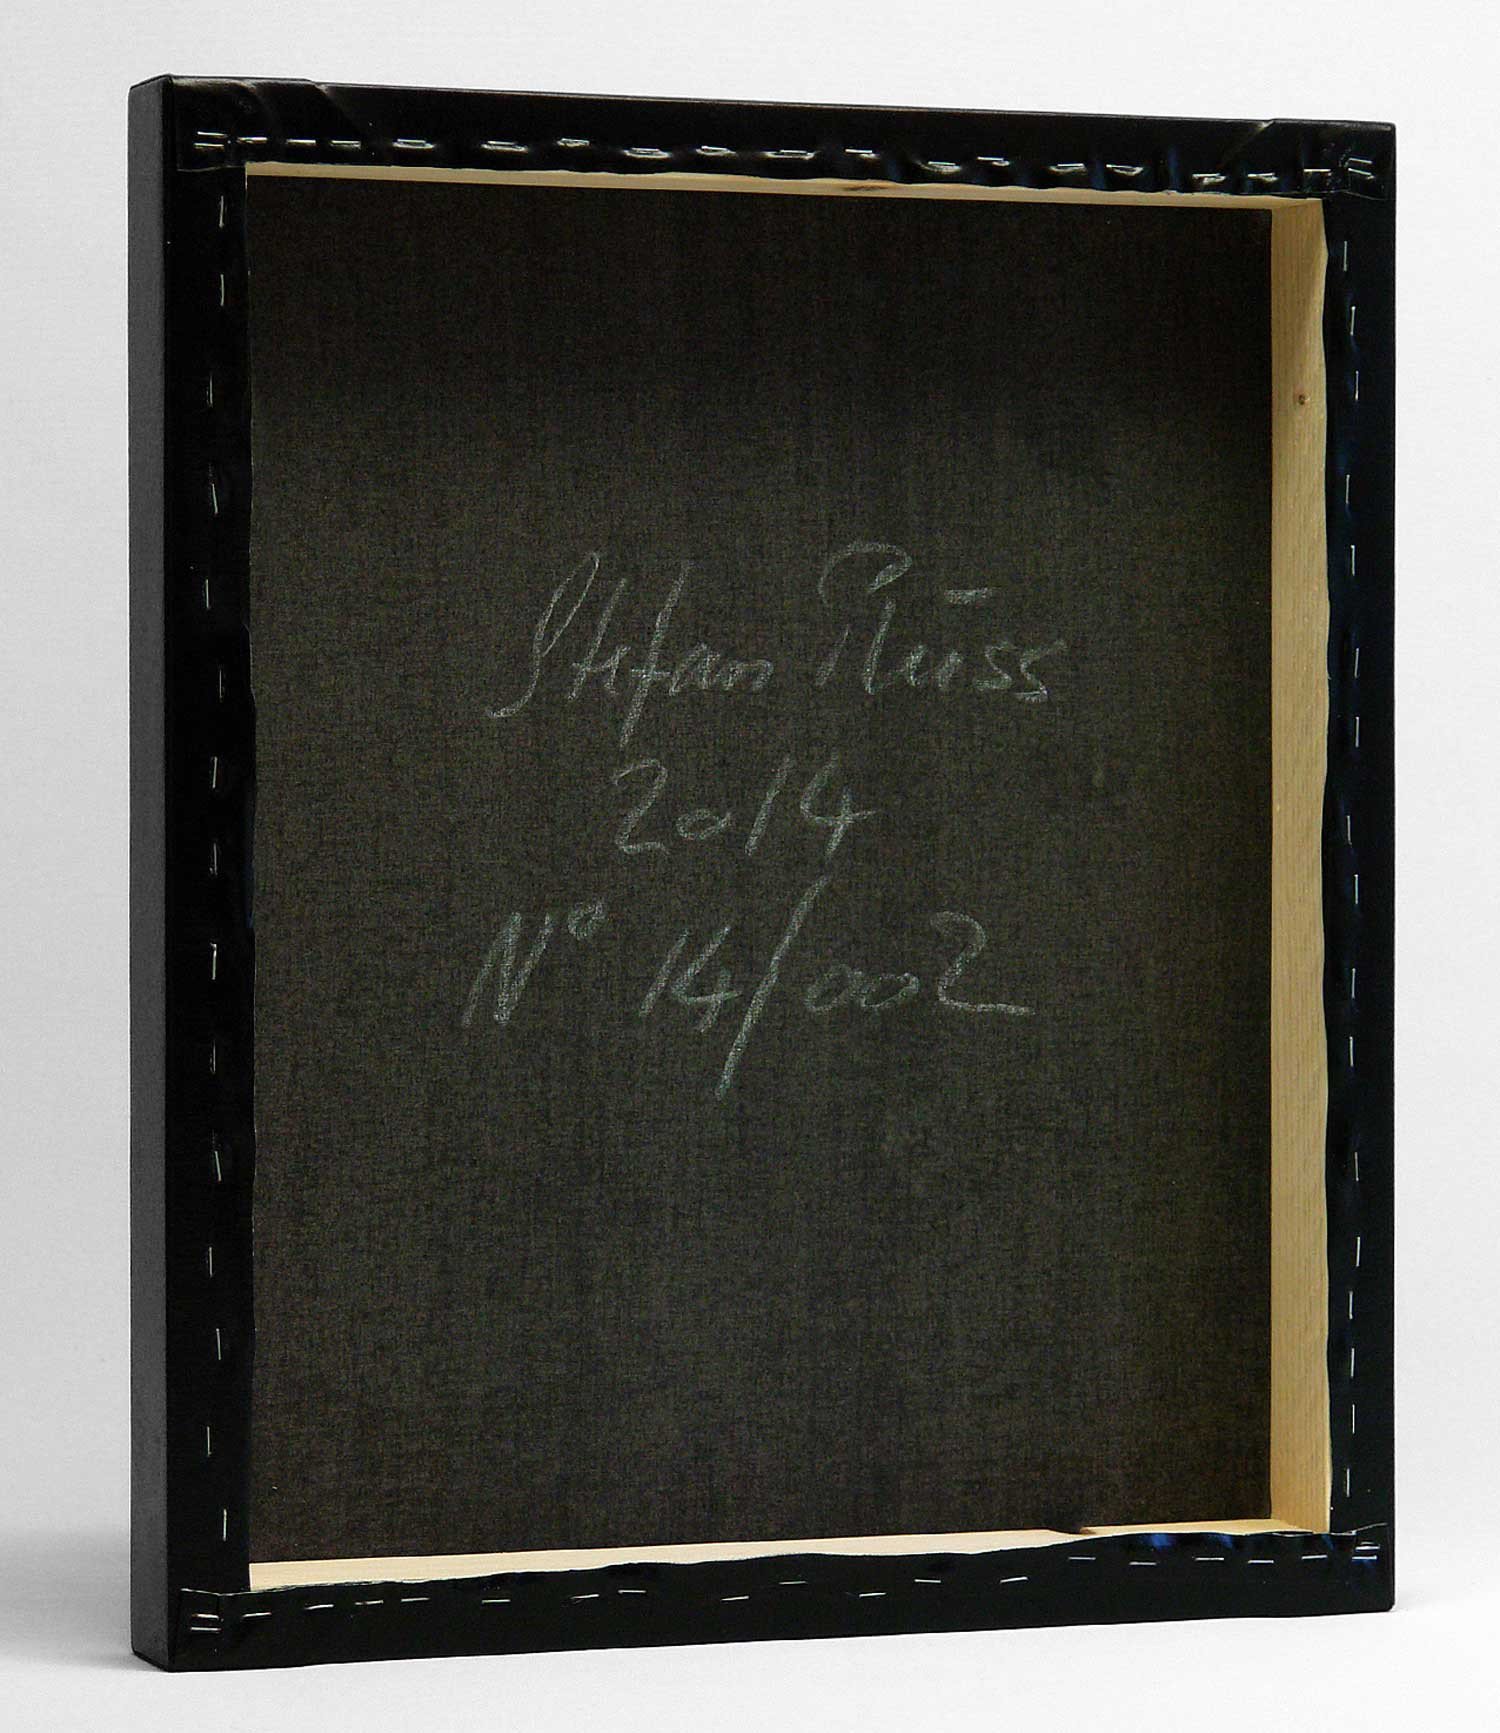 Stefan Rüss
2014
Nº 14/002